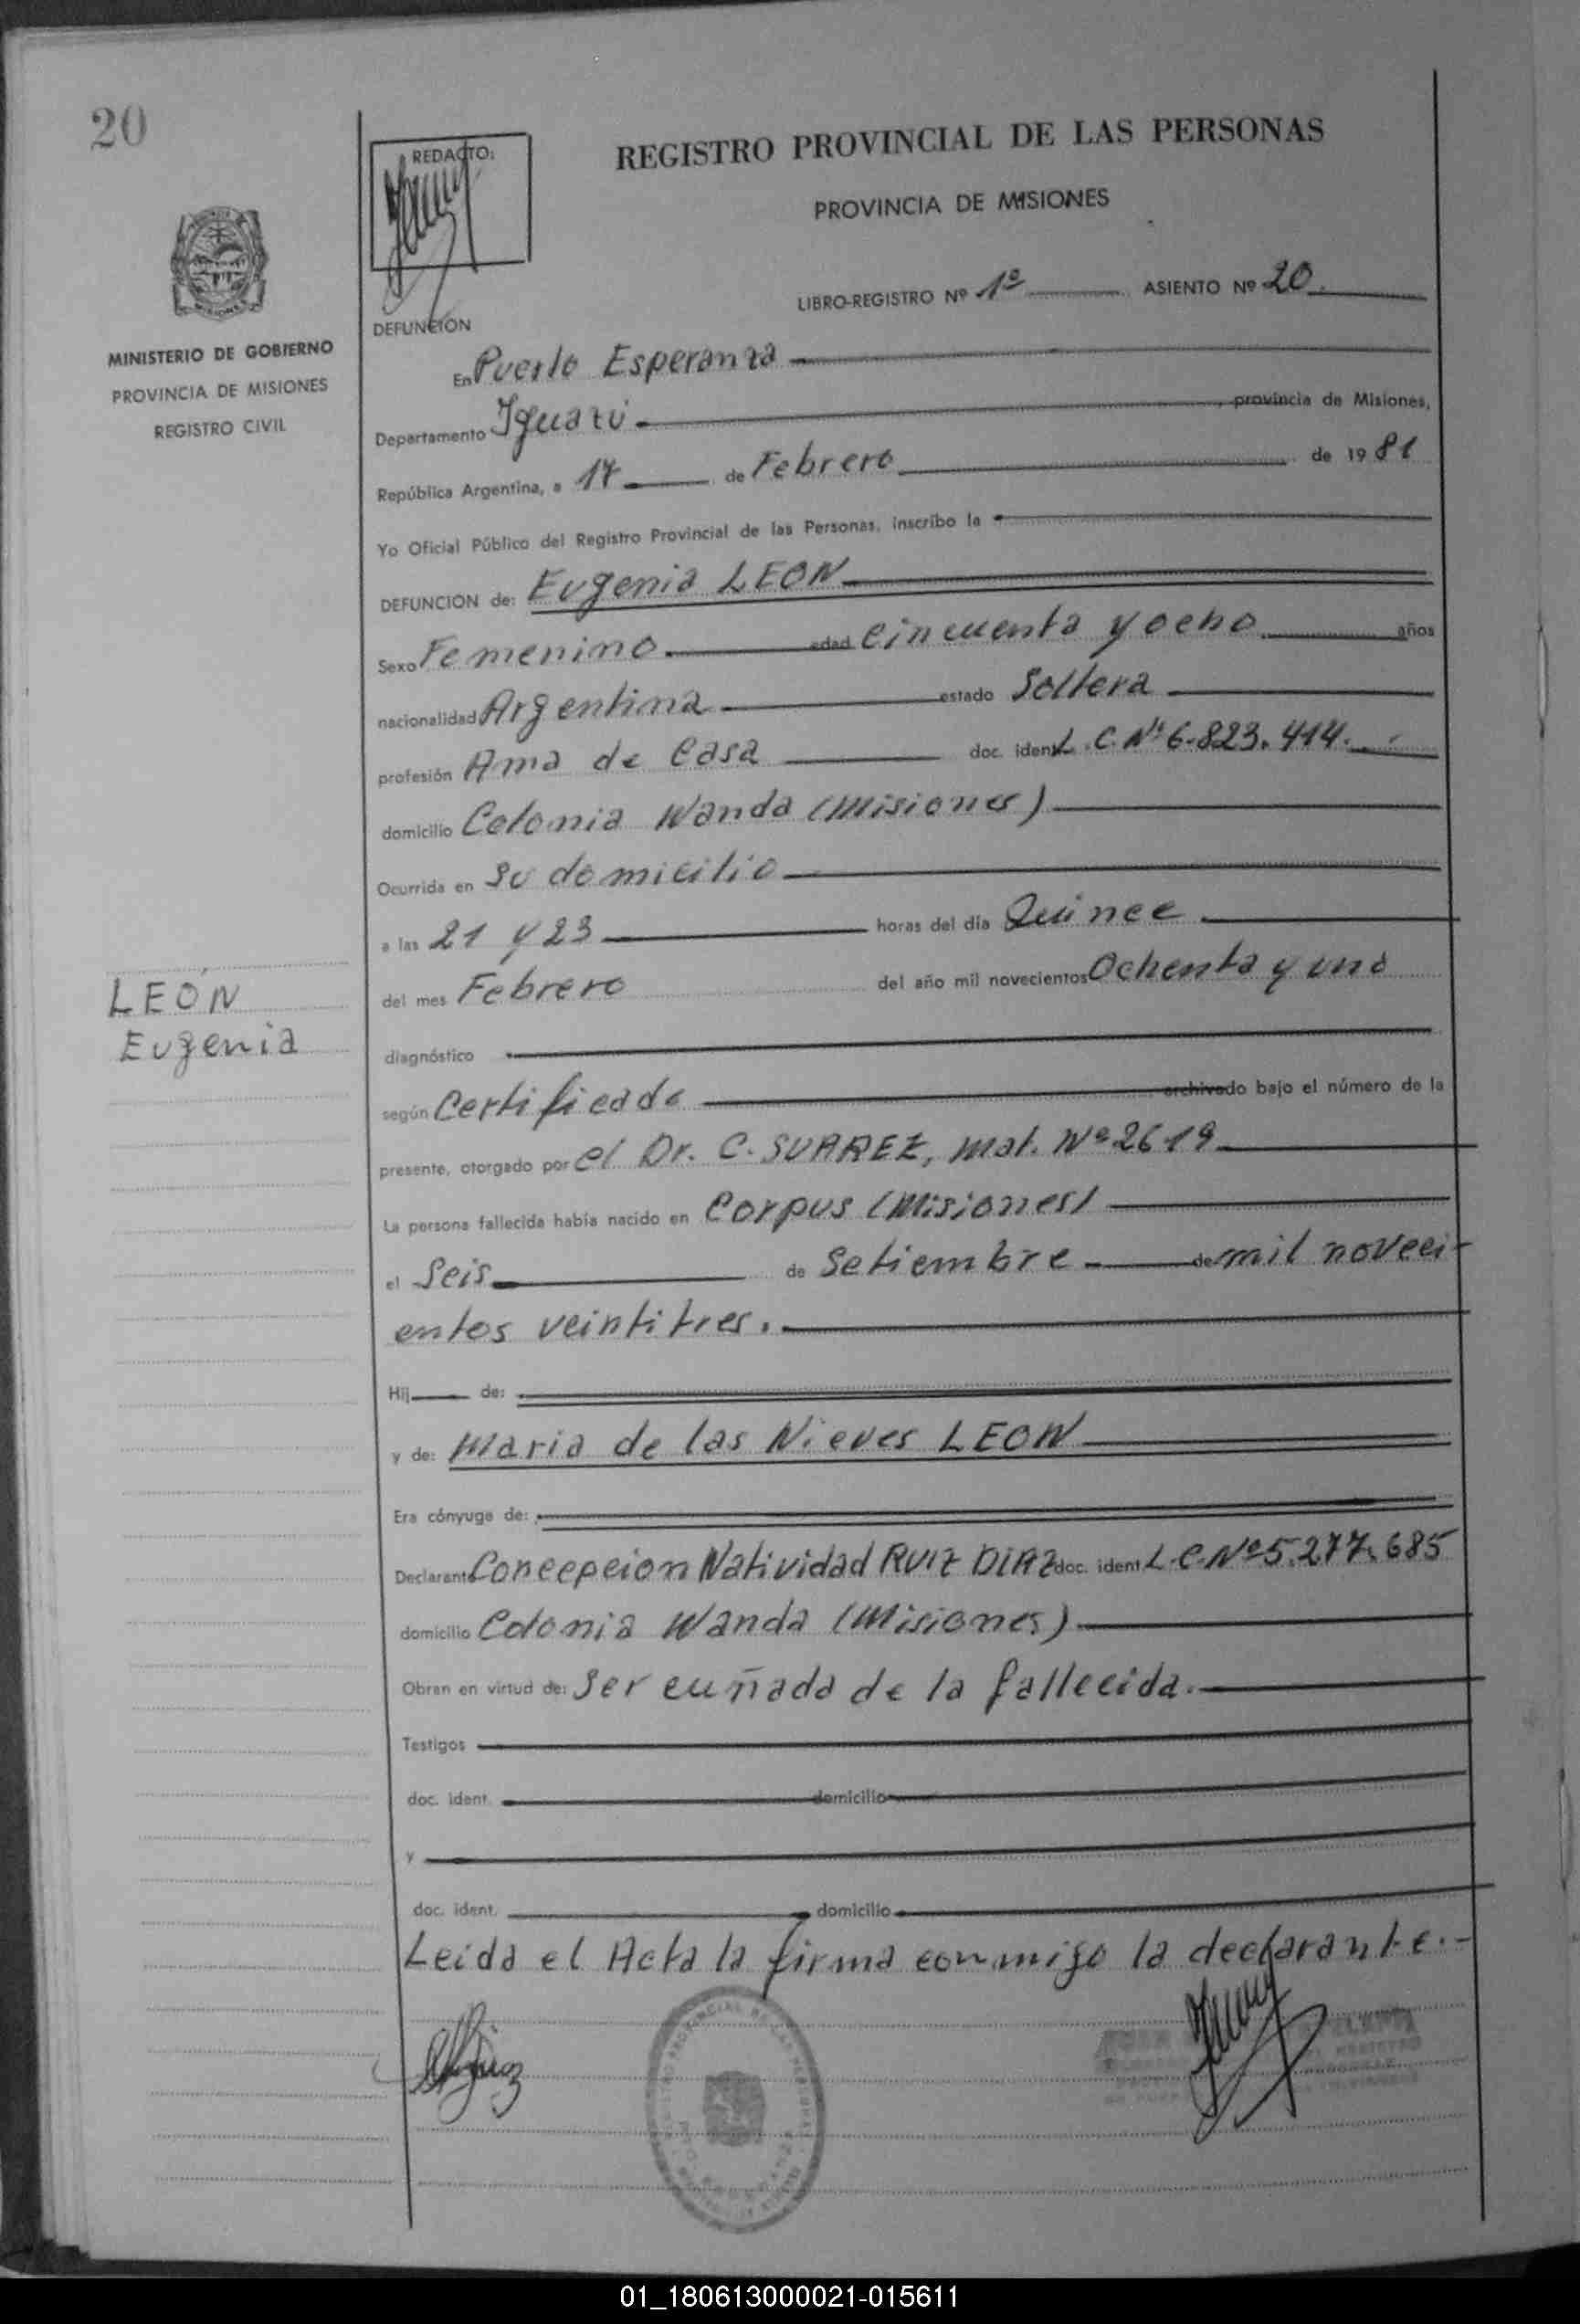 20
REDACTO:
REGISTRO PROVINCIAL DE LAS PERSONAS
PROVINCIA DE MISIONES
LIBRO-REGISTRO Nº 1º ASIENTO Nº 20.
MINISTERIO DE GOBIERNO
PROVINCIA DE MISIONES
REGISTRO CIVIL
DEFUNCION
En Puerto Esperanza
Departamento Iguazú provincia de Misiones,
República Argentina, a 17 de Febrero de 1981
Yo Oficial Público del Registro Provincial de las Personas, inscribo la
DEFUNCION de: Eugenia LEON
Sexo Femenino edad Cincuenta y ocho años
nacionalidad Argentina estado Soltera
profesión Ama de Casa doc. ident. L.C.Nº 6.823.414.
domicilio Colonia Wanda (Misiones)
Ocurrida en su domicilio
a las 21 y 23 horas del día Quince
del mes Febrero del año mil novecientos Ochenta y uno
LEÓN
Eugenia
diagnóstico
según Certificado archivado bajo el número de la
presente, otorgado por el Dr. C. SUAREZ, Mat. Nº 2619
La persona fallecida había nacido en Corpus (Misiones)
el Seis de Setiembre de mil noveci-
entos veintitres.
Hij de:
y de: Maria de las Nieves LEON
Era cónyuge de:
Declarante Concepcion Natividad RUIZ DIAZ doc. ident. L.C.Nº 5.277.685
domicilio Colonia Wanda (Misiones)
Obran en virtud de: Ser cuñada de la fallecida.
Testigos
doc. ident. domicilio
y
doc. ident. domicilio
Leida el Acta la firma conmigo la declarante.-
01_180613000021-015611